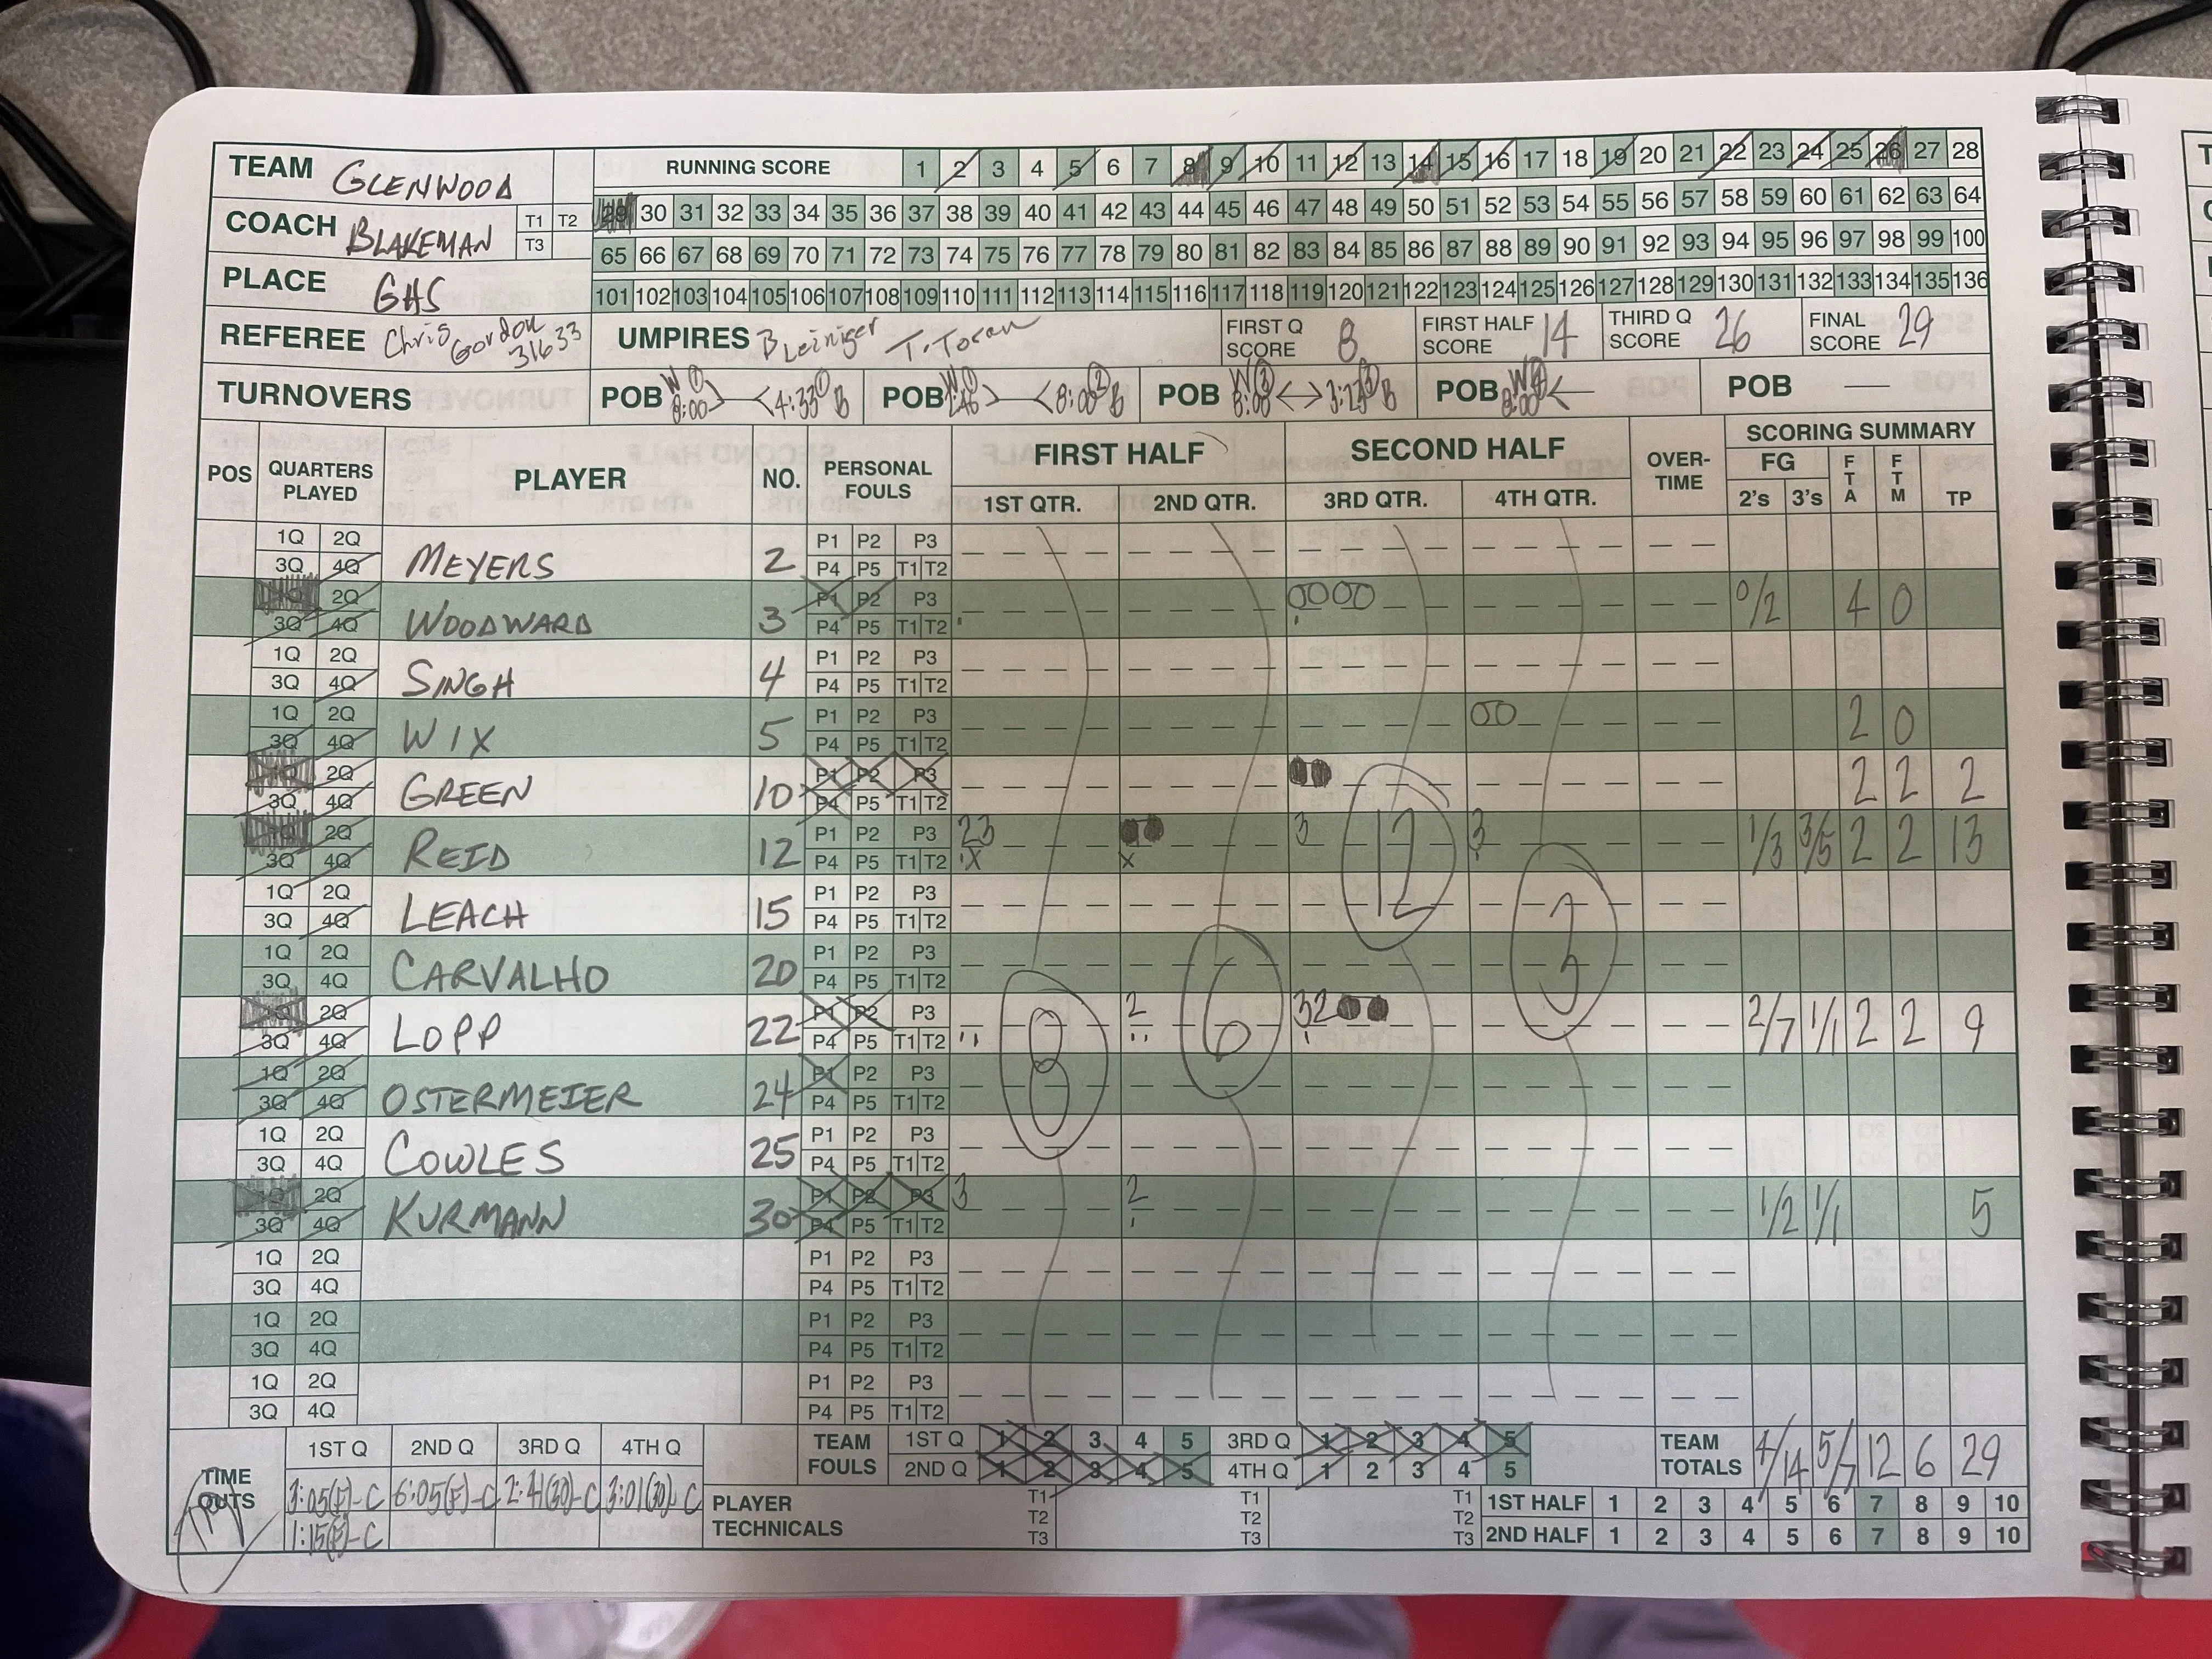 TEAM GLENWOOD
RUNNING SCORE 1 2 3 4 5 6 7 8 9 10 11 12 13 14 15 16 17 18 19 20 21 22 23 24 25 26 27 28
29 30 31 32 33 34 35 36 37 38 39 40 41 42 43 44 45 46 47 48 49 50 51 52 53 54 55 56 57 58 59 60 61 62 63 64
COACH BLAKEMAN T1 T2 T3
65 66 67 68 69 70 71 72 73 74 75 76 77 78 79 80 81 82 83 84 85 86 87 88 89 90 91 92 93 94 95 96 97 98 99 100
PLACE GHS
101 102 103 104 105 106 107 108 109 110 111 112 113 114 115 116 117 118 119 120 121 122 123 124 125 126 127 128 129 130 131 132 133 134 135 136
REFEREE Chris Gordon 31633 UMPIRES B Leiniger T. Toran FIRST Q SCORE 8 FIRST HALF SCORE 14 THIRD Q SCORE 26 FINAL SCORE 29
TURNOVERS POB W 1 8:00 4:33 1 B POB W 8:00 2 B POB W 8:00 3:23 B POB W 4 8:00 POB —
POS QUARTERS PLAYED PLAYER NO. PERSONAL FOULS FIRST HALF SECOND HALF OVER-TIME SCORING SUMMARY
1ST QTR. 2ND QTR. 3RD QTR. 4TH QTR. FG 2's 3's FTA FTM TP
1Q 2Q P1 P2 P3
3Q 4Q MEYERS 2 P4 P5 T1 T2
2Q P1 P2 P3 0000 0/2 4 0
3Q 4Q WOODWARD 3 P4 P5 T1 T2
1Q 2Q P1 P2 P3
3Q 4Q SINGH 4 P4 P5 T1 T2
1Q 2Q P1 P2 P3 00 2 0
3Q 4Q WIX 5 P4 P5 T1 T2
2Q P1 P2 P3 2 2 2
3Q 4Q GREEN 10 P4 P5 T1 T2
2Q P1 P2 P3 23 3 3 1/3 3/5 2 2 13
3Q 4Q REID 12 P4 P5 T1 T2 X X 12
1Q 2Q P1 P2 P3
3Q 4Q LEACH 15 P4 P5 T1 T2 3
1Q 2Q P1 P2 P3
3Q 4Q CARVALHO 20 P4 P5 T1 T2
2Q P1 P2 P3 2 32 2/7 1/1 2 2 9
3Q 4Q LOPP 22 P4 P5 T1 T2 6
1Q 2Q P1 P2 P3 8
3Q 4Q OSTERMEIER 24 P4 P5 T1 T2
1Q 2Q P1 P2 P3
3Q 4Q COWLES 25 P4 P5 T1 T2
2Q P1 P2 P3 3 2 1/2 1/1 5
3Q 4Q KURMANN 30 P4 P5 T1 T2
1Q 2Q P1 P2 P3
3Q 4Q P4 P5 T1 T2
1Q 2Q P1 P2 P3
3Q 4Q P4 P5 T1 T2
1Q 2Q P1 P2 P3
3Q 4Q P4 P5 T1 T2
TIME OUTS 1ST Q 2ND Q 3RD Q 4TH Q TEAM FOULS 1ST Q 1 2 3 4 5 3RD Q 1 2 3 4 5 TEAM TOTALS 4/14 5/7 12 6 29
2ND Q 1 2 3 4 5 4TH Q 1 2 3 4 5
3:05(F)-C 6:05(F)-C 2:41(30)-C 3:01(30)-C PLAYER TECHNICALS T1 T2 T3 T1 T2 T3 T1 T2 T3 1ST HALF 1 2 3 4 5 6 7 8 9 10
1:15(F)-C 2ND HALF 1 2 3 4 5 6 7 8 9 10